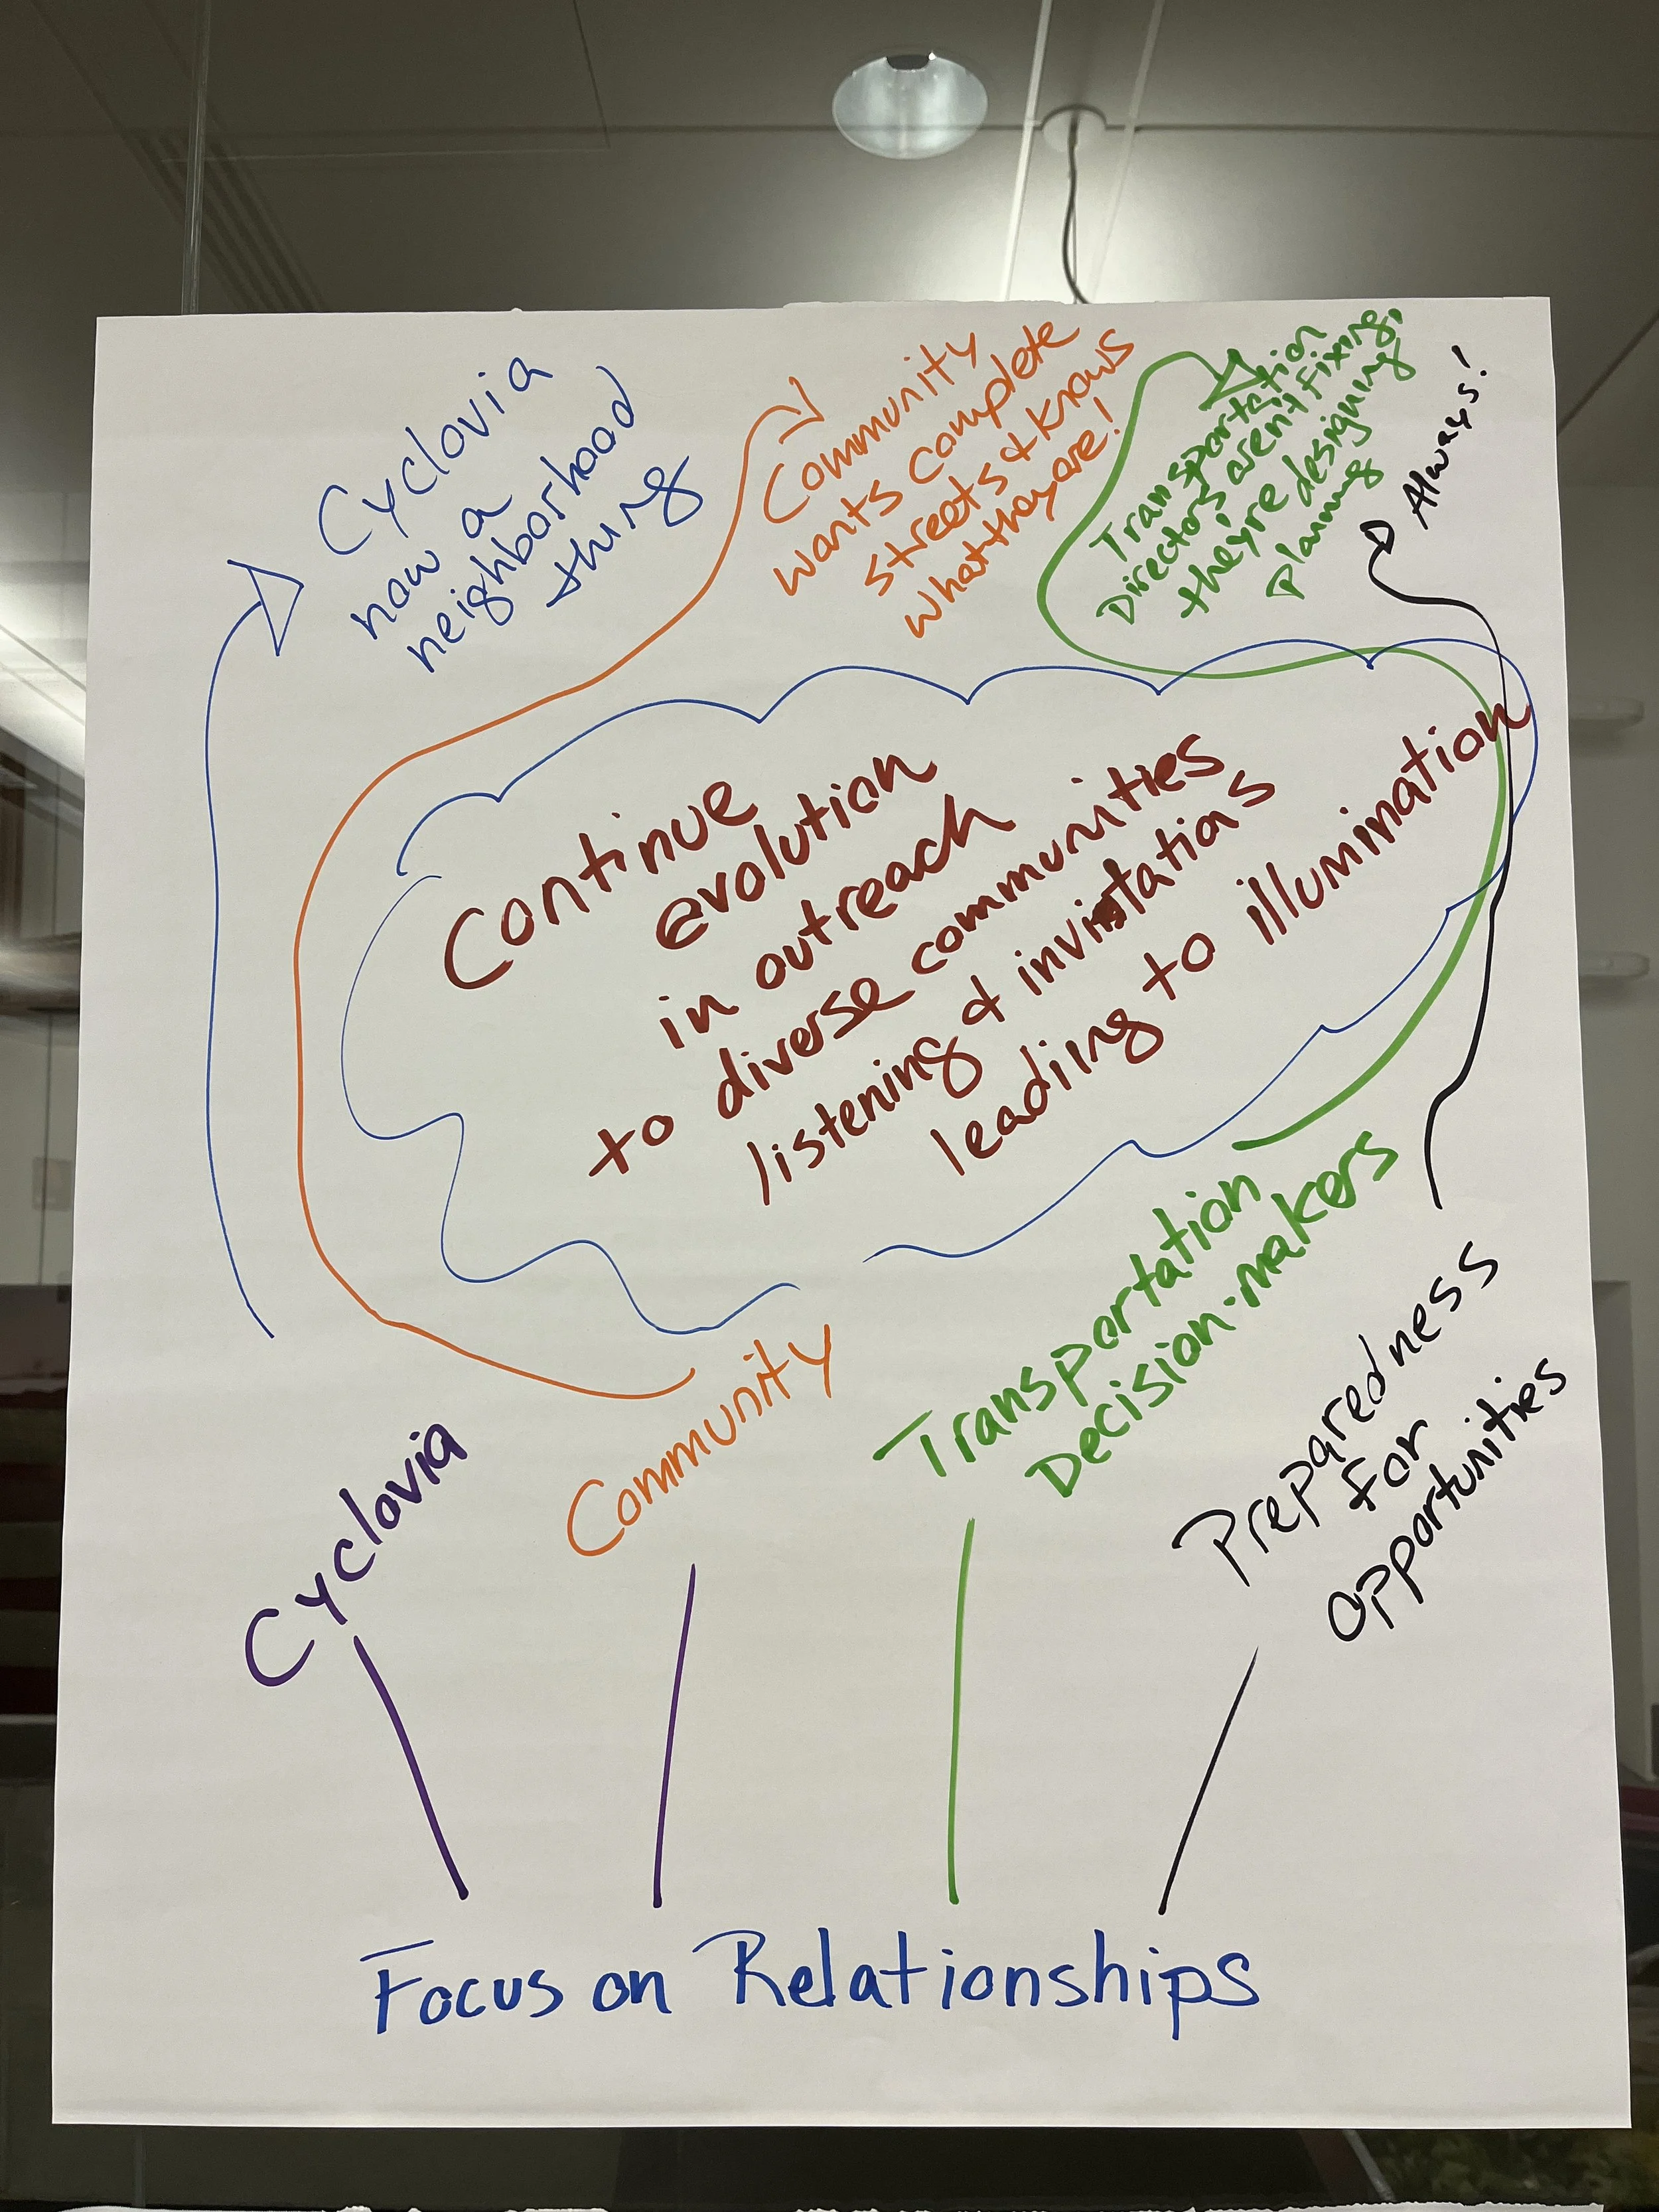 Cyclovia
now a
neighborhood
thing
Community
wants complete
streets & knows
what they are!
Transportation
Directors arent fixing,
they're designing
planning
Always!
Continue
evolution
in outreach
to diverse communities
listening & invitations
leadiing to illumination
Cyclovia
Community
Transportation
Decision-makers
Preparedness
for
opportunities
Focus on Relationships